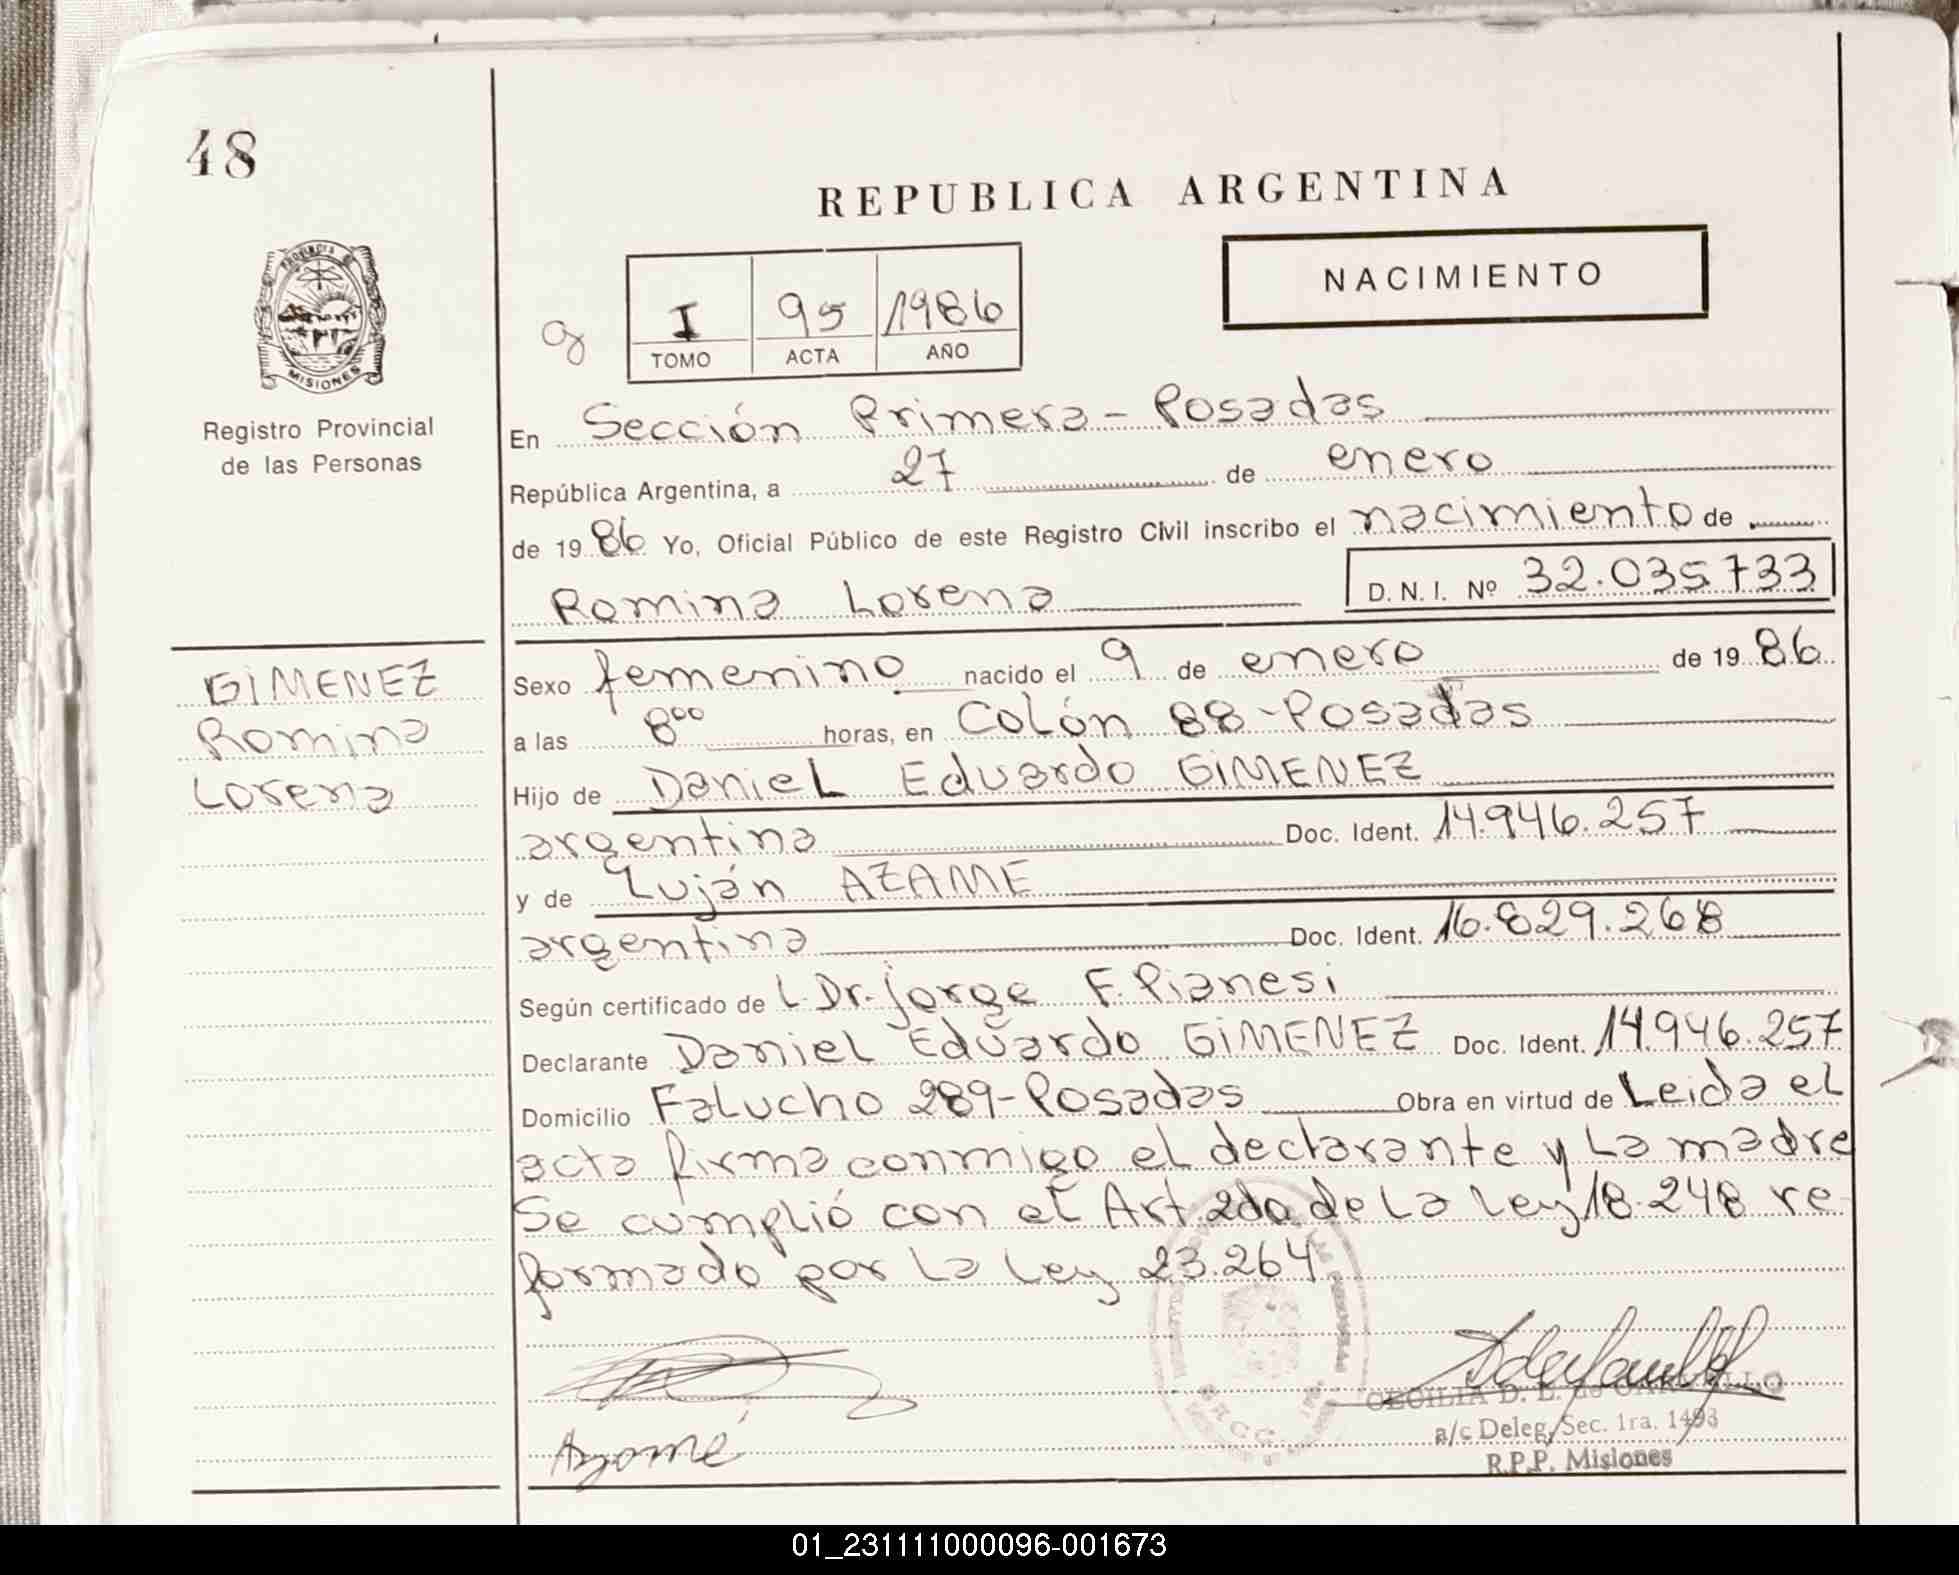 48
REPUBLICA ARGENTINA
NACIMIENTO
PROVINCIA
MISIONES
Registro Provincial
de las Personas
g
I 95 1986
TOMO ACTA AÑO
En Sección Primera - Posadas
República Argentina, a 27 de enero
de 1986 Yo, Oficial Público de este Registro Civil inscribo el nacimiento de
Romina Lorena D.N.I. Nº 32.035.733
GIMENEZ
Romina
Lorena
Sexo femenino nacido el 9 de enero de 1986
a las 8⁰⁰ horas, en Colón 88 - Posadas
Hijo de Daniel Eduardo GIMENEZ
argentina Doc. Ident. 14.946.257
y de Luján AZAME
argentina Doc. Ident. 16.829.268
Según certificado de L. Dr. Jorge F. Pianesi
Declarante Daniel Eduardo GIMENEZ Doc. Ident. 14.946.257
Domicilio Falucho 289 - Posadas Obra en virtud de Leida el
acta firma conmigo el declarante y la madre
Se cumplió con el Art. 2do de la Ley 18.248 re-
formado por la Ley 23.264
CECILIA D. E. de
a/c Deleg. Sec. 1ra. 1493
R.P.P. Misiones
01_231111000096-001673